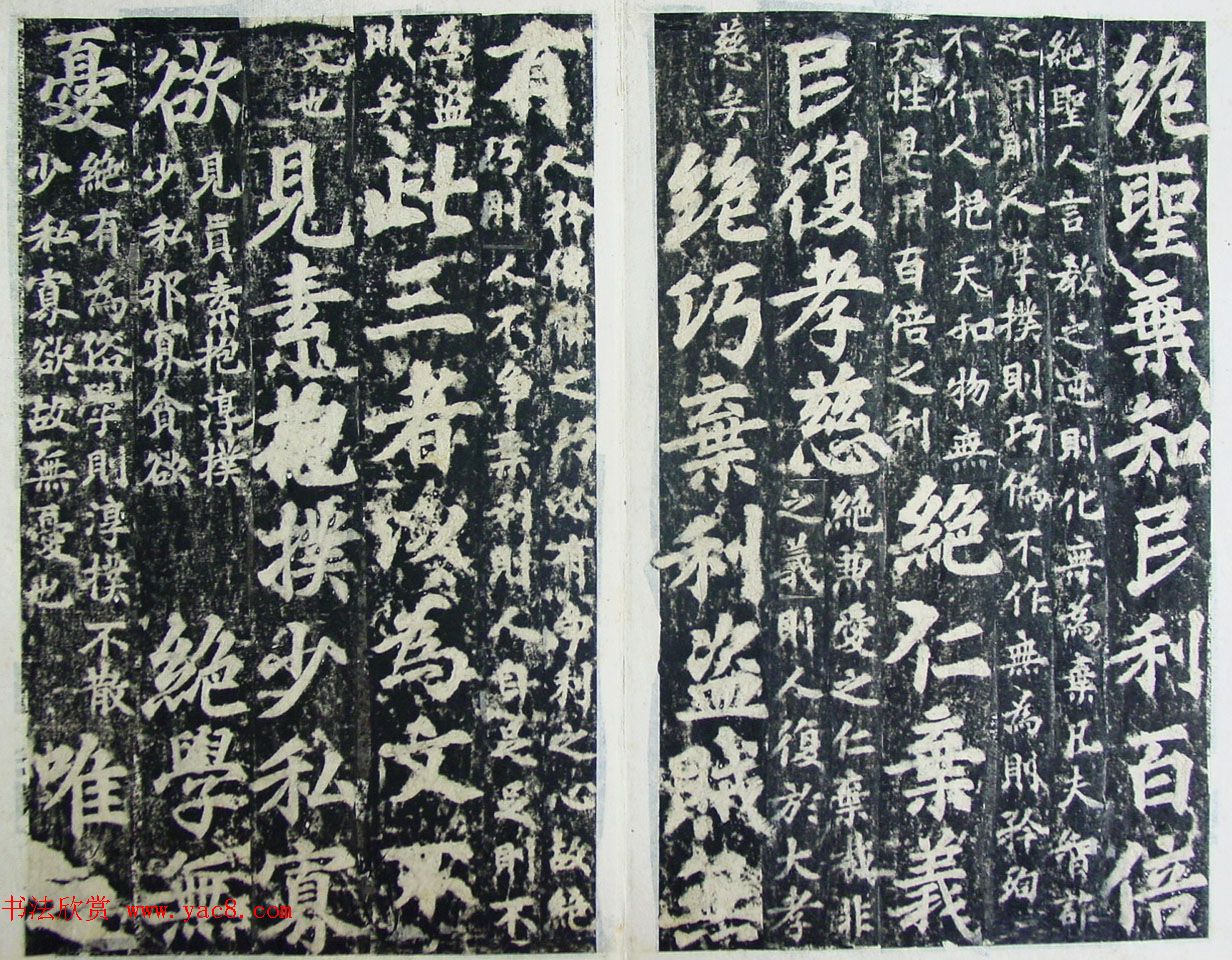 絕聖棄知民利百倍
絕聖人言教之迹則化無為棄凡大智詐
之用則人淳撲則巧偽不作無為則矜徇
不行人挹天和物無
天性是有百倍之利
絕仁棄義
民復孝慈
絕兼愛之仁棄裁非
之義則人復於大孝
慈矣
絕巧棄利盜賊無
有
人矜偽之巧必有爭利之心故絕
巧則人不爭棄利則人自足足則不
為盜
賊矣
此三者以為文不
文也
見素抱撲少私寡
欲
見真素抱淳撲
少私邪寡貪欲
絕學無
憂
絕有為俗學則淳撲不散
少私寡欲故無憂也
唯
书法欣赏 www.yac8.com